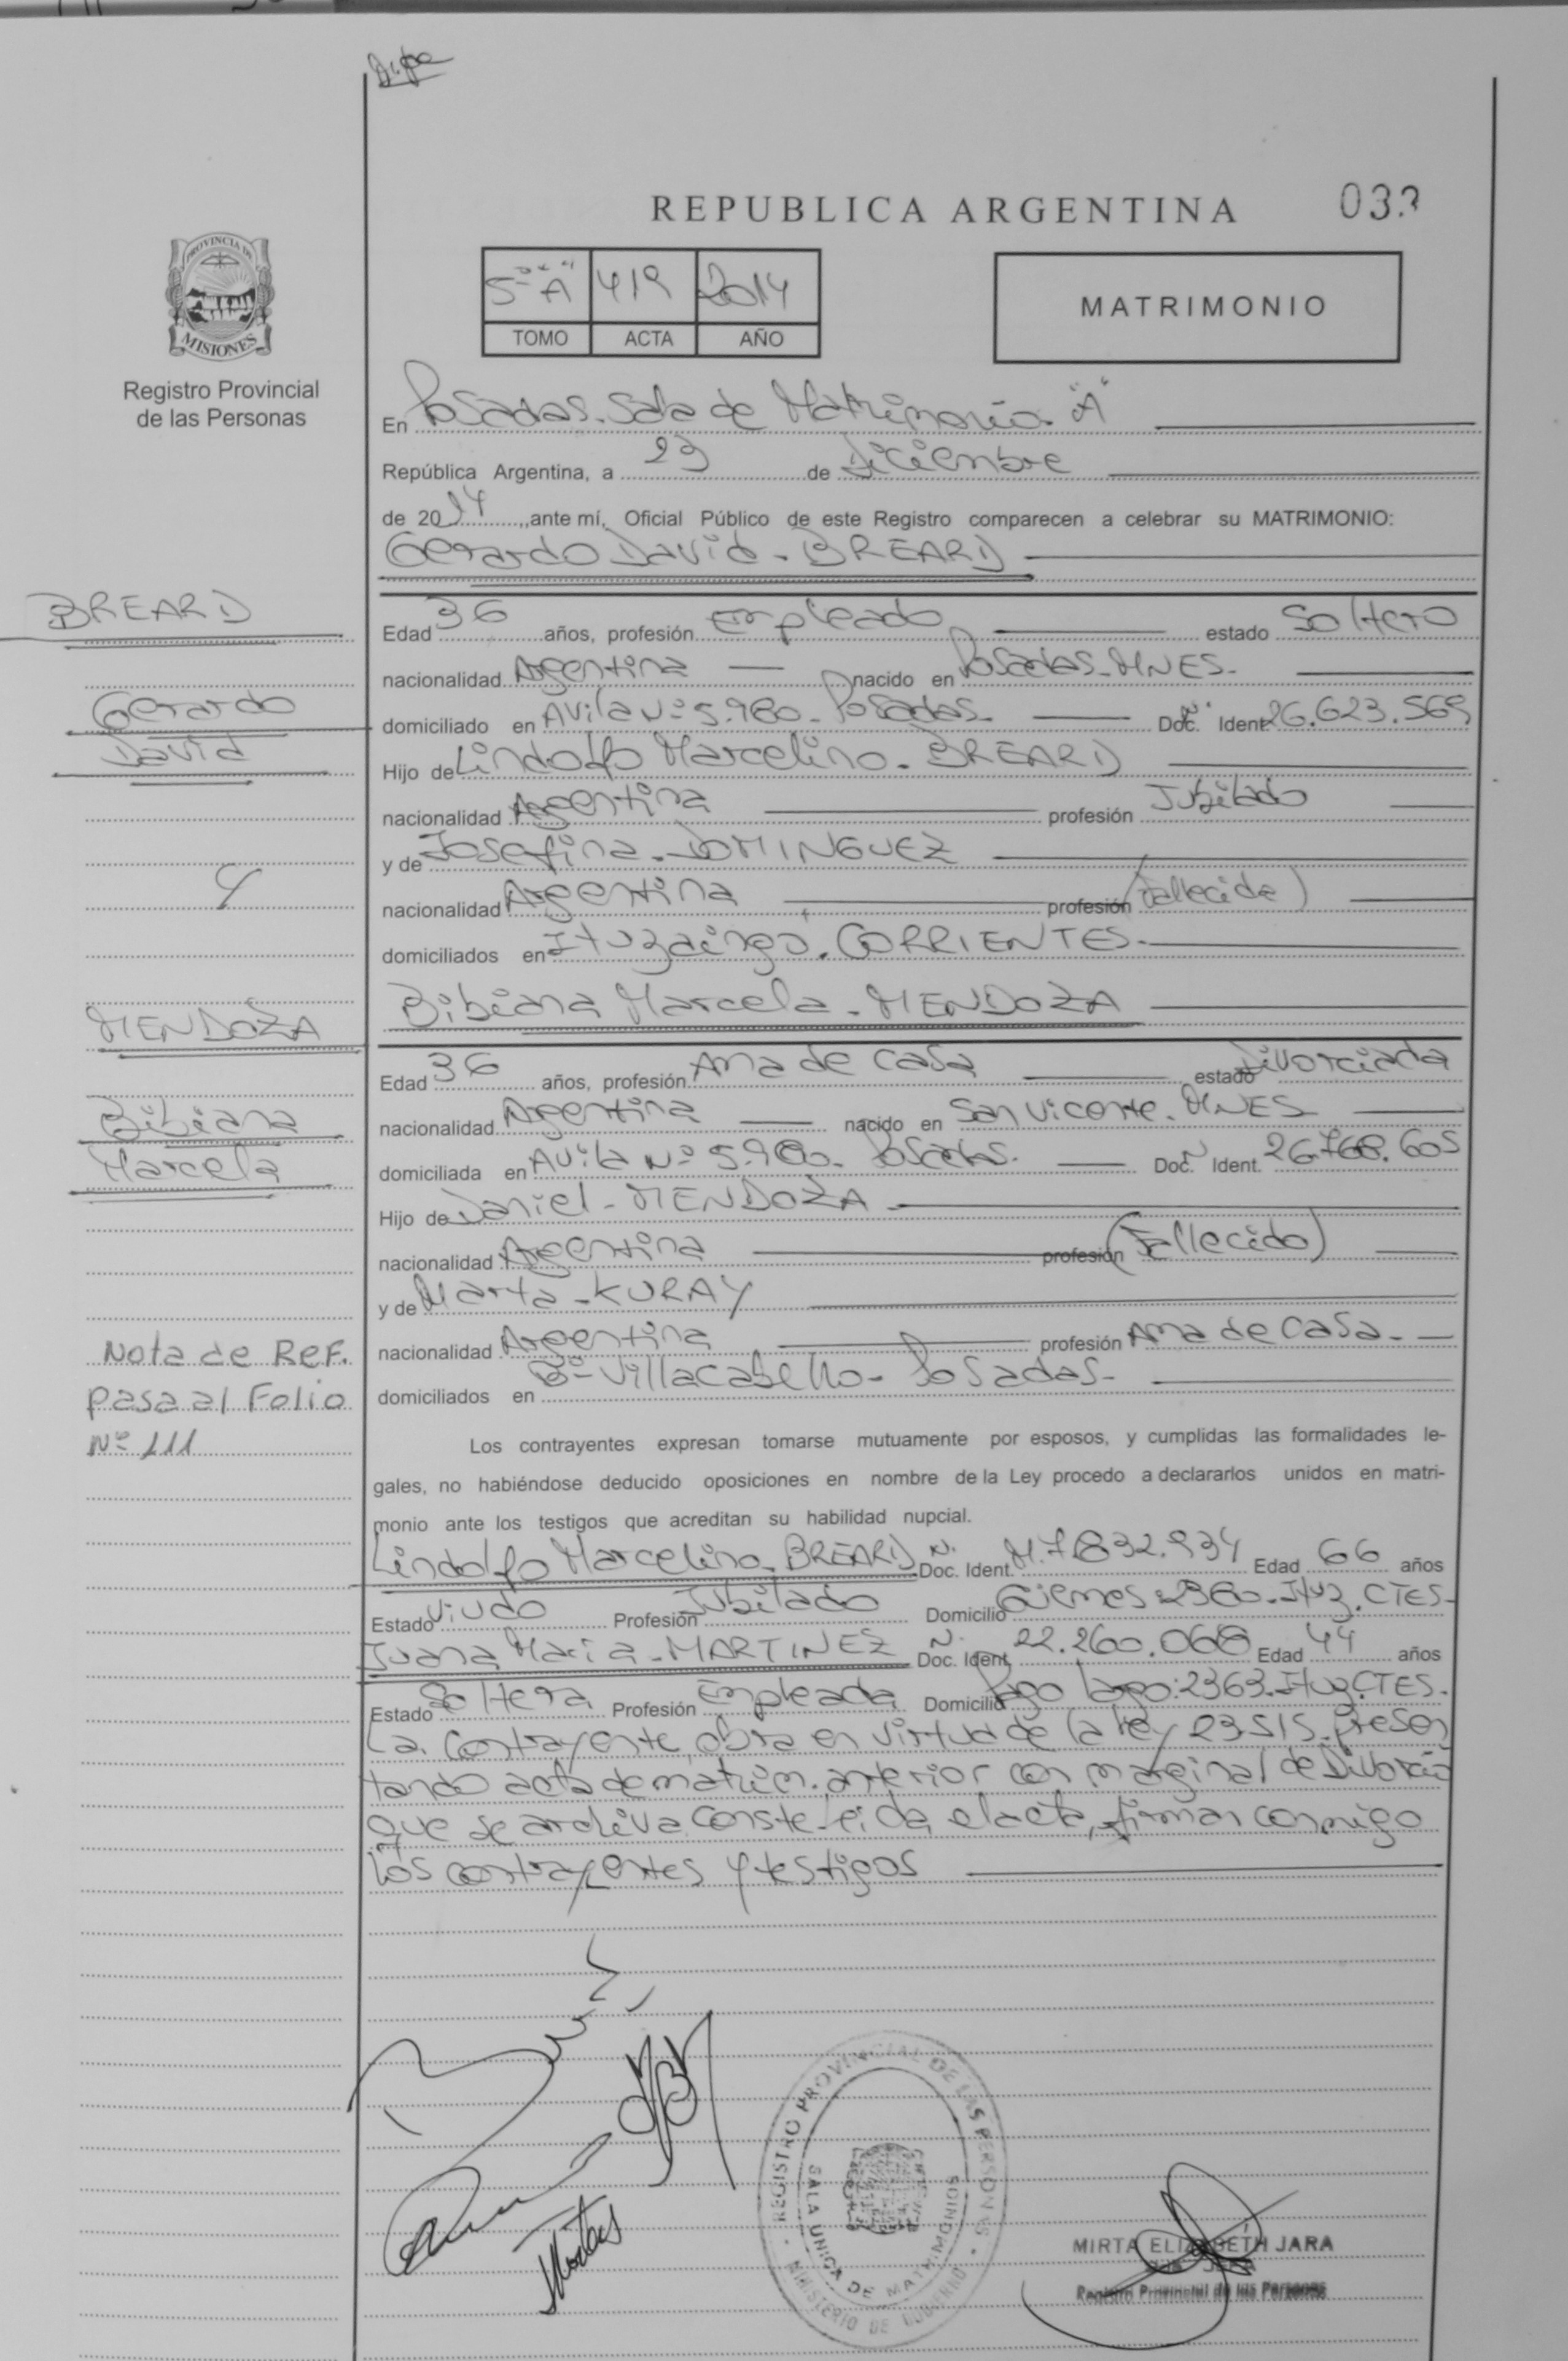 REPUBLICA ARGENTINA
PROVINCIA DE
MISIONES
Registro Provincial
de las Personas
5º "A" 419 2014
TOMO ACTA AÑO
MATRIMONIO
En Posadas. Sala de Matrimonio "A"
República Argentina, a 23 de Diciembre
de 2014, ante mí, Oficial Público de este Registro comparecen a celebrar su MATRIMONIO:
Gerardo David - BREARD
BREARD
Edad 36 años, profesión Empleado estado Soltero
nacionalidad Argentina nacido en Posadas - MNES -
Gerardo
domiciliado en Avila Nº 5.980 - Posadas - Doc. Ident. 26.623.569
David
Hijo de Lindolfo Marcelino - BREARD
nacionalidad Argentina profesión Jubilado
y de Josefina - DOMINGUEZ
y
nacionalidad Argentina profesión (Fallecida)
domiciliados en Ituzaingó. CORRIENTES -
Bibiana Marcela - MENDOZA
MENDOZA
Edad 36 años, profesión Ama de Casa estado Divorciada
Bibiana
nacionalidad Argentina nacido en San Vicente. MNES
Marcela
domiciliada en Avila Nº 5.980 - Posadas. Doc. Ident. 26.768.605
Hijo de Daniel - MENDOZA
nacionalidad Argentina profesión (Fallecido)
y de Marta - KURAY
Nota de Ref.
nacionalidad Argentina profesión Ama de Casa -
pasa al Folio
domiciliados en Bº Villacabello - Posadas -
Nº 111
Los contrayentes expresan tomarse mutuamente por esposos, y cumplidas las formalidades le-
gales, no habiéndose deducido oposiciones en nombre de la Ley procedo a declararlos unidos en matri-
monio ante los testigos que acreditan su habilidad nupcial.
Lindolfo Marcelino - BREARD Doc. Ident. M. 7.832.934 Edad 66 años
Estado Viudo Profesión Jubilado Domicilio Güemes 2360 - Ituz. CTES -
Juana Maria - MARTINEZ Doc. Ident. 22.260.068 Edad 44 años
Estado Soltera Profesión Empleada Domicilio Pago Largo: 2363 - Ituz. CTES -
La Contrayente, obra en virtud de la ley 23.515 - presen
tando acta de matrim. anterior con marginal de Divorcio
que se archiva. Conste leida el acta, firman conmigo
los contrayentes y testigos
REGISTRO PROVINCIAL DE LAS PERSONAS
SALA UNICA DE MATRIMONIOS
MINISTERIO DE GOBIERNO
MIRTA ELIZABETH JARA
Registro Provincial de las Personas